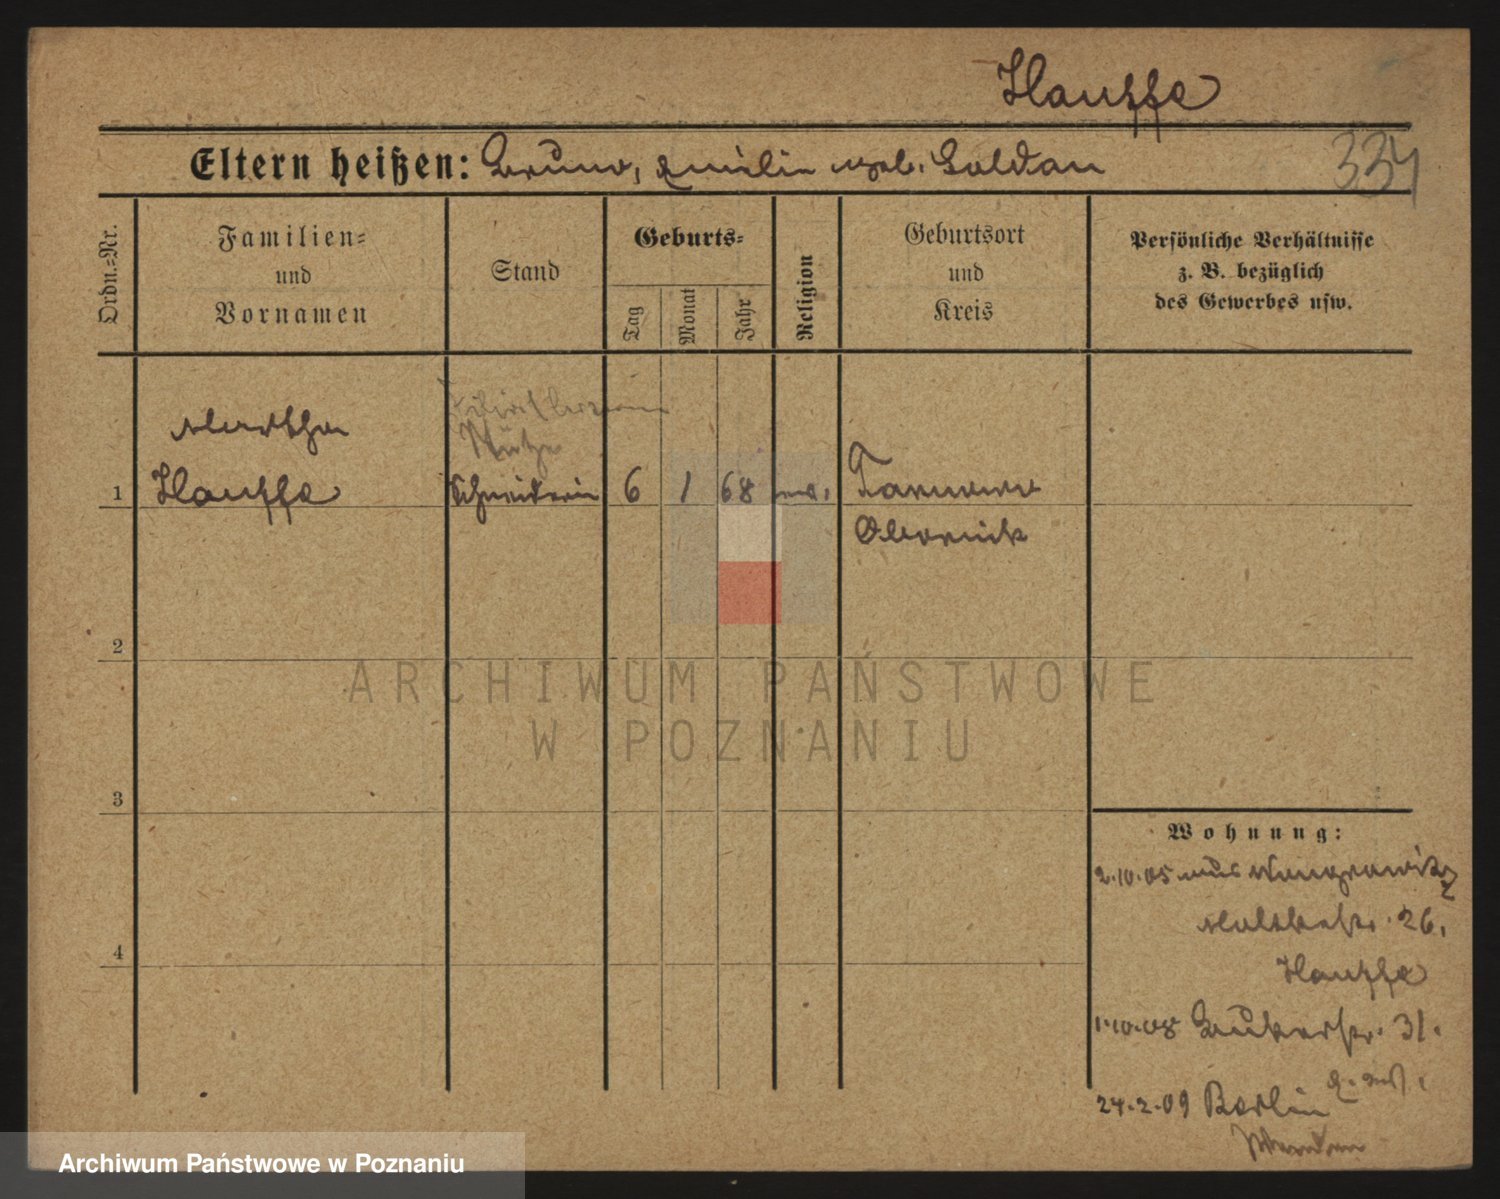 Hauffe
Eltern heißen: Bruno, Emilie geb. Goldan
334
Ordn.=Nr.
Familien=
und
Vornamen
Stand
Geburts=
Tag
Monat
Jahr
Religion
Geburtsort
und
Kreis
Persönliche Verhältnisse
z. B. bezüglich
des Gewerbes usw.
Martha
Stütze
1 Hauffe Schneiderin 6 1 68 Tarnowo
Obornick
2
3
4
Wohnung:
2.10.05 aus Wongrowitz
Moltkestr. 26.
Hauffe
1.10.08 Bukerstr. 31.
24.2.09 Berlin
ARCHIWUM PAŃSTWOWE
W POZNANIU
Archiwum Państwowe w Poznaniu